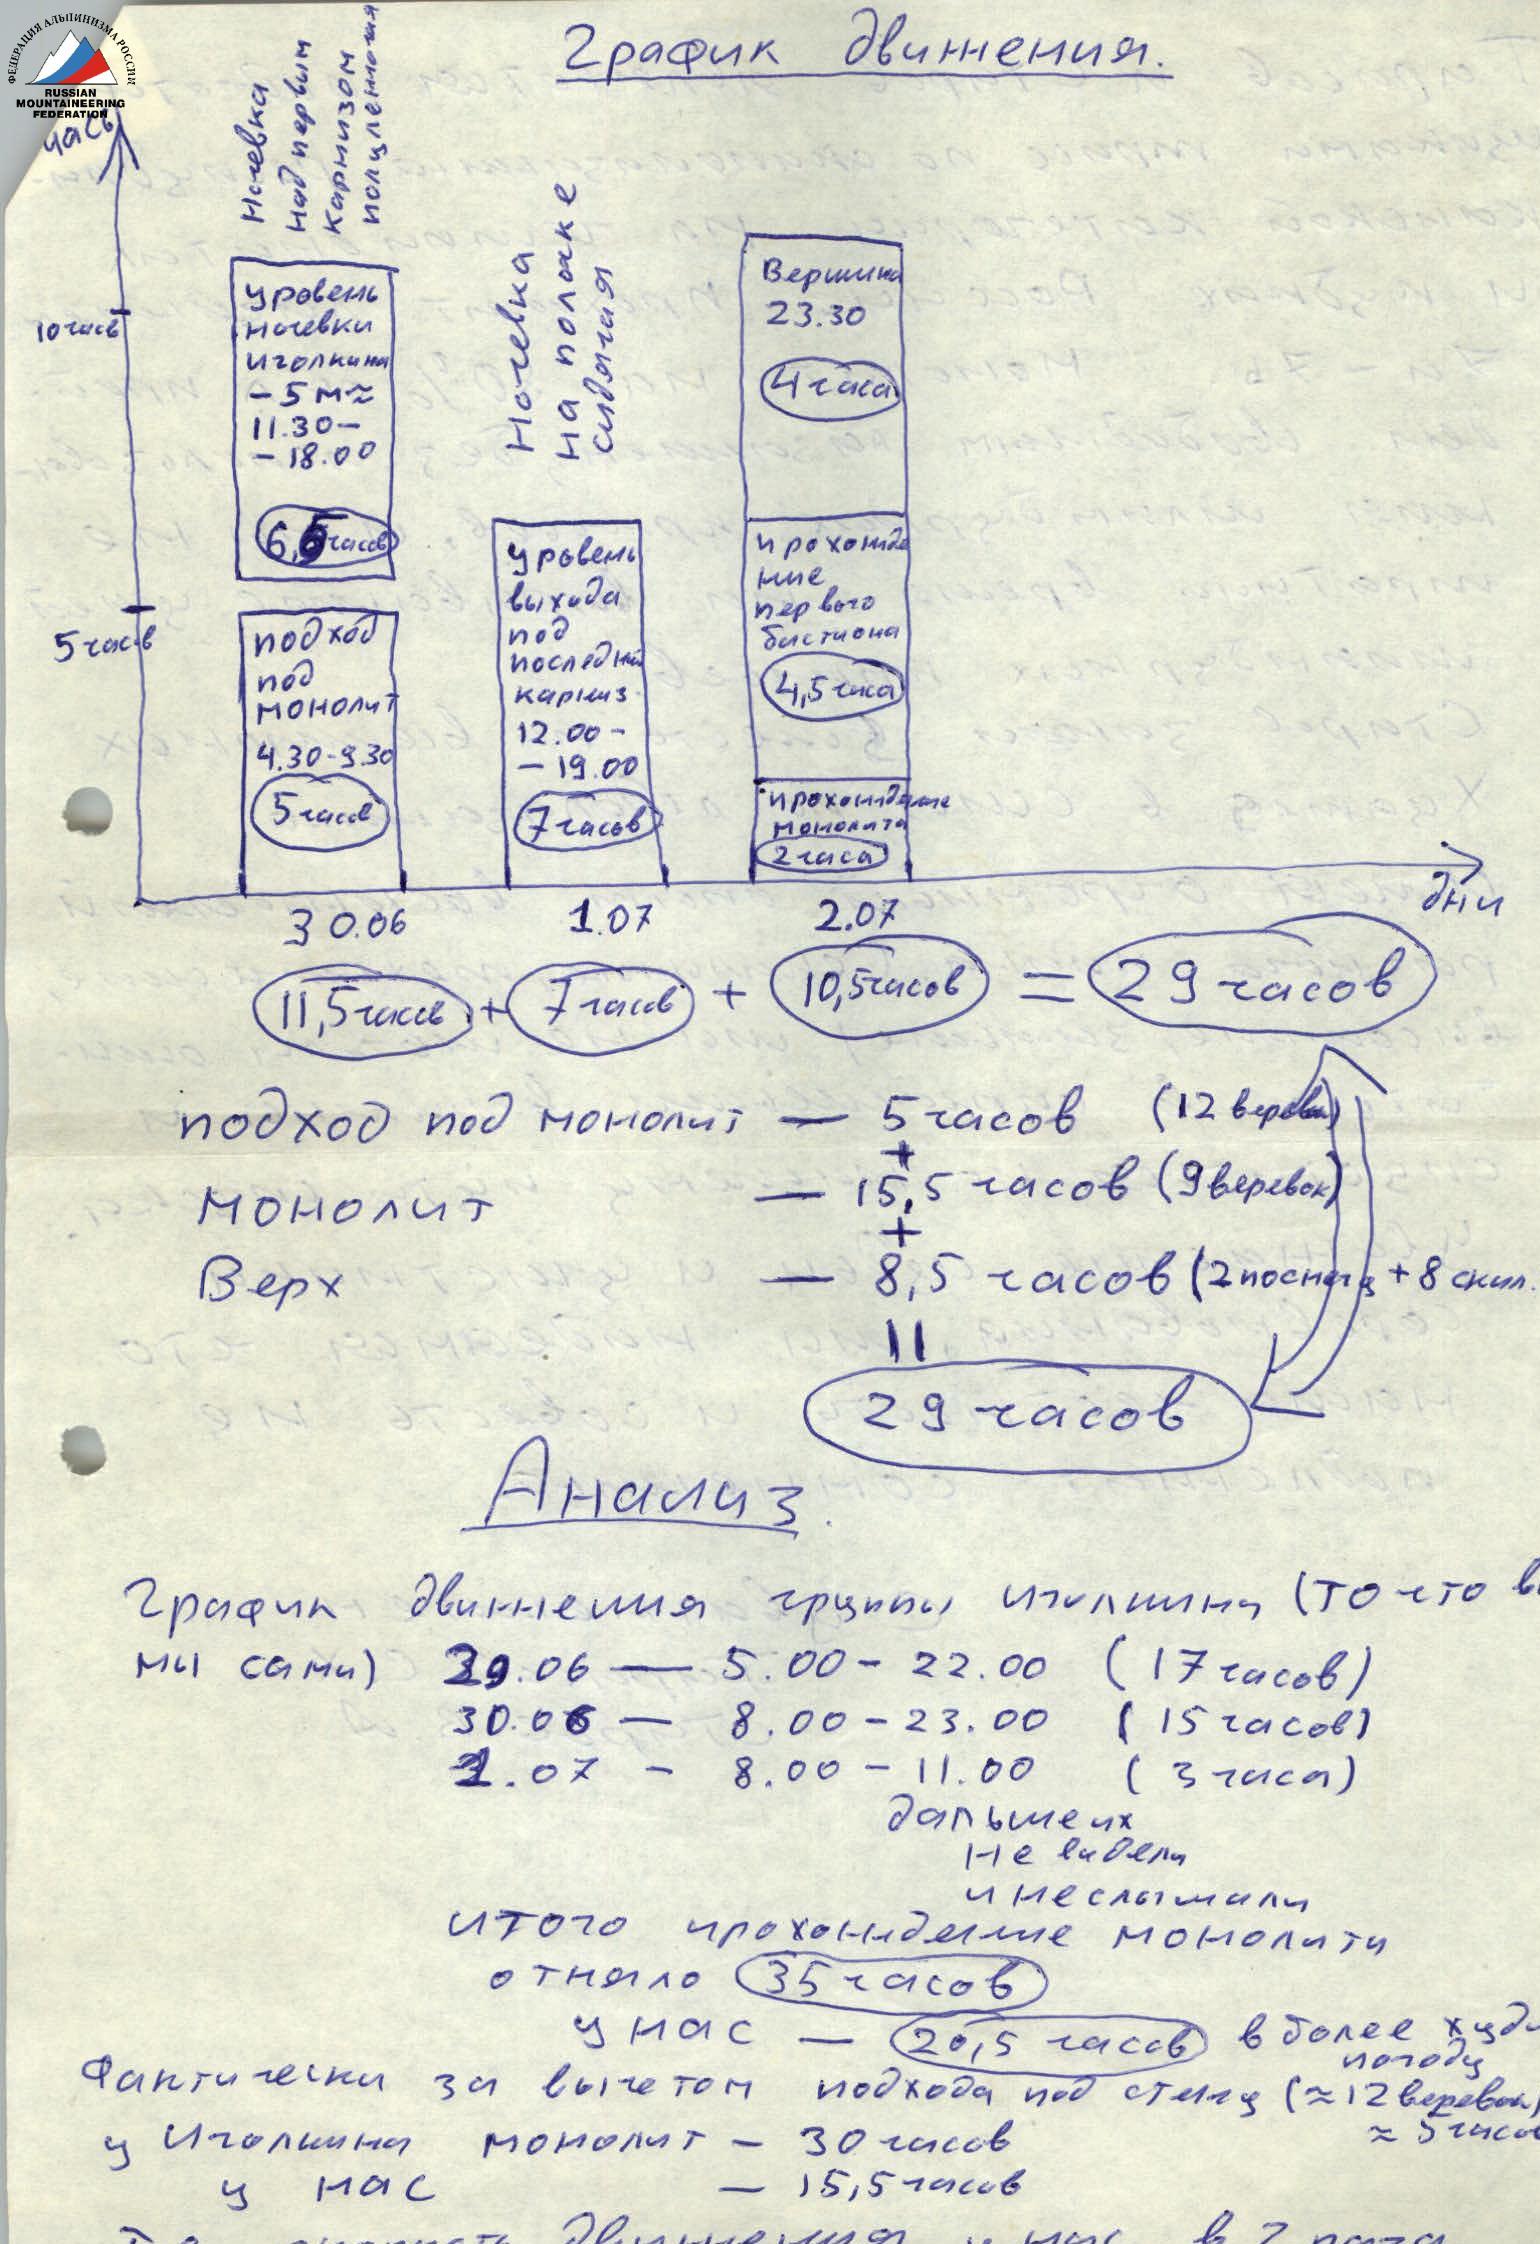 ФЕДЕРАЦИЯ АЛЬПИНИЗМА РОССИИ
RUSSIAN
MOUNTAINEERING
FEDERATION
График движения.
часы
10 часов
5 часов
Ночевка
над первым
карнизом
полулежачая
уровень
ночевки
Иголкина
- 5 м ≈
11.30 -
- 18.00
6,5 часов
подход
под
монолит
4.30-9.30
5 часов
Ночевка
на полке
сидячая
уровень
выхода
под
последний
карниз
12.00 -
- 19.00
7 часов
Вершина
23.30
4 часа
прохожде
ние
первого
бастиона
4,5 часа
прохождение
монолита
2 часа
дни
30.06 1.07 2.07
11,5 часов + 7 часов + 10,5 часов = 29 часов
подход под монолит — 5 часов (12 веревок)
+
монолит — 15,5 часов (9 веревок)
+
Верх — 8,5 часов (2 + 8
=
29 часов
Анализ.
График движения группы Иголкина (то что
мы сами) 29.06 — 5.00 - 22.00 (17 часов)
30.06 — 8.00 - 23.00 (15 часов)
1.07 - 8.00 - 11.00 (3 часа)
дальше их
не видели
и не слышали
итого прохождение монолита
отняло 35 часов
у нас — 20,5 часов в более
погоду
Фактически за вычетом подхода под стену (≈ 12 веревок)
≈ 5
у Иголкина монолит - 30 часов
у нас — 15,5 часов
движения у нас в 2 раза